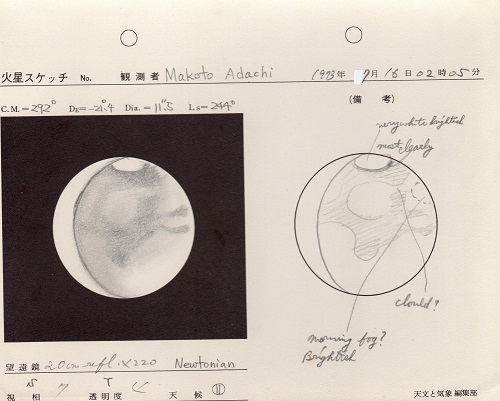 火星スケッチ No. 観測者 Makoto Adachi 1973年 7月16日02時05分
C.M.=292° DE=-21.°4 Dia.=11."5 Ls=244°
(備 考)
very white brightish
most clearly
clould?
morning fog?
Brightish
望遠鏡 20cm refl. ×220 Newtonian
視相 透明度 天候
天文と気象 編集部